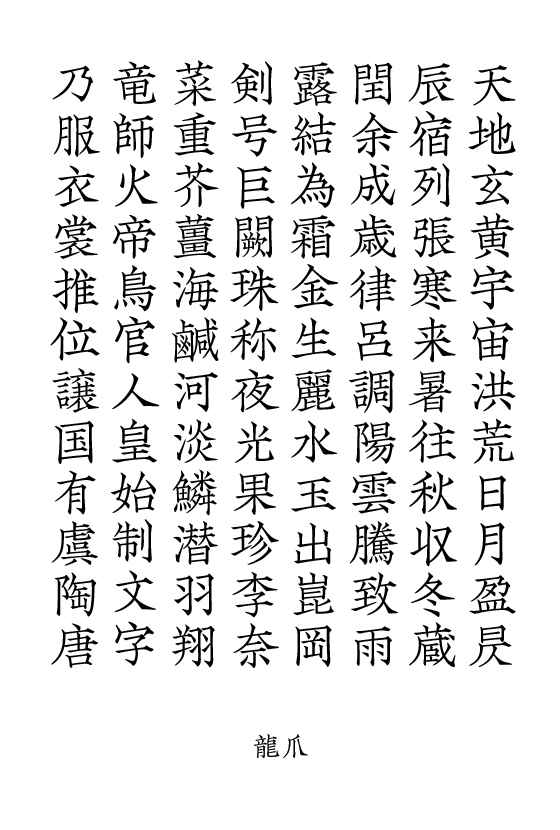 天地玄黄宇宙洪荒日月盈昃
辰宿列張寒来暑往秋収冬蔵
閏余成歳律呂調陽雲騰致雨
露結為霜金生麗水玉出崑岡
剣号巨闕珠称夜光果珍李奈
菜重芥薑海鹹河淡鱗潜羽翔
竜師火帝鳥官人皇始制文字
乃服衣裳推位譲国有虞陶唐
龍爪